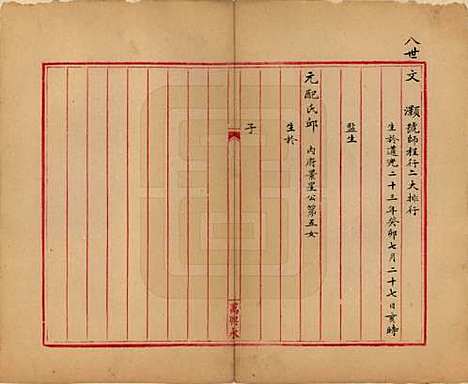 八世文 灝號師程行二大排行
生於道光二十三年癸卯七月二十七日亥時
監生
元配氏邱 內府業星公第五女
生於
子
萬興永